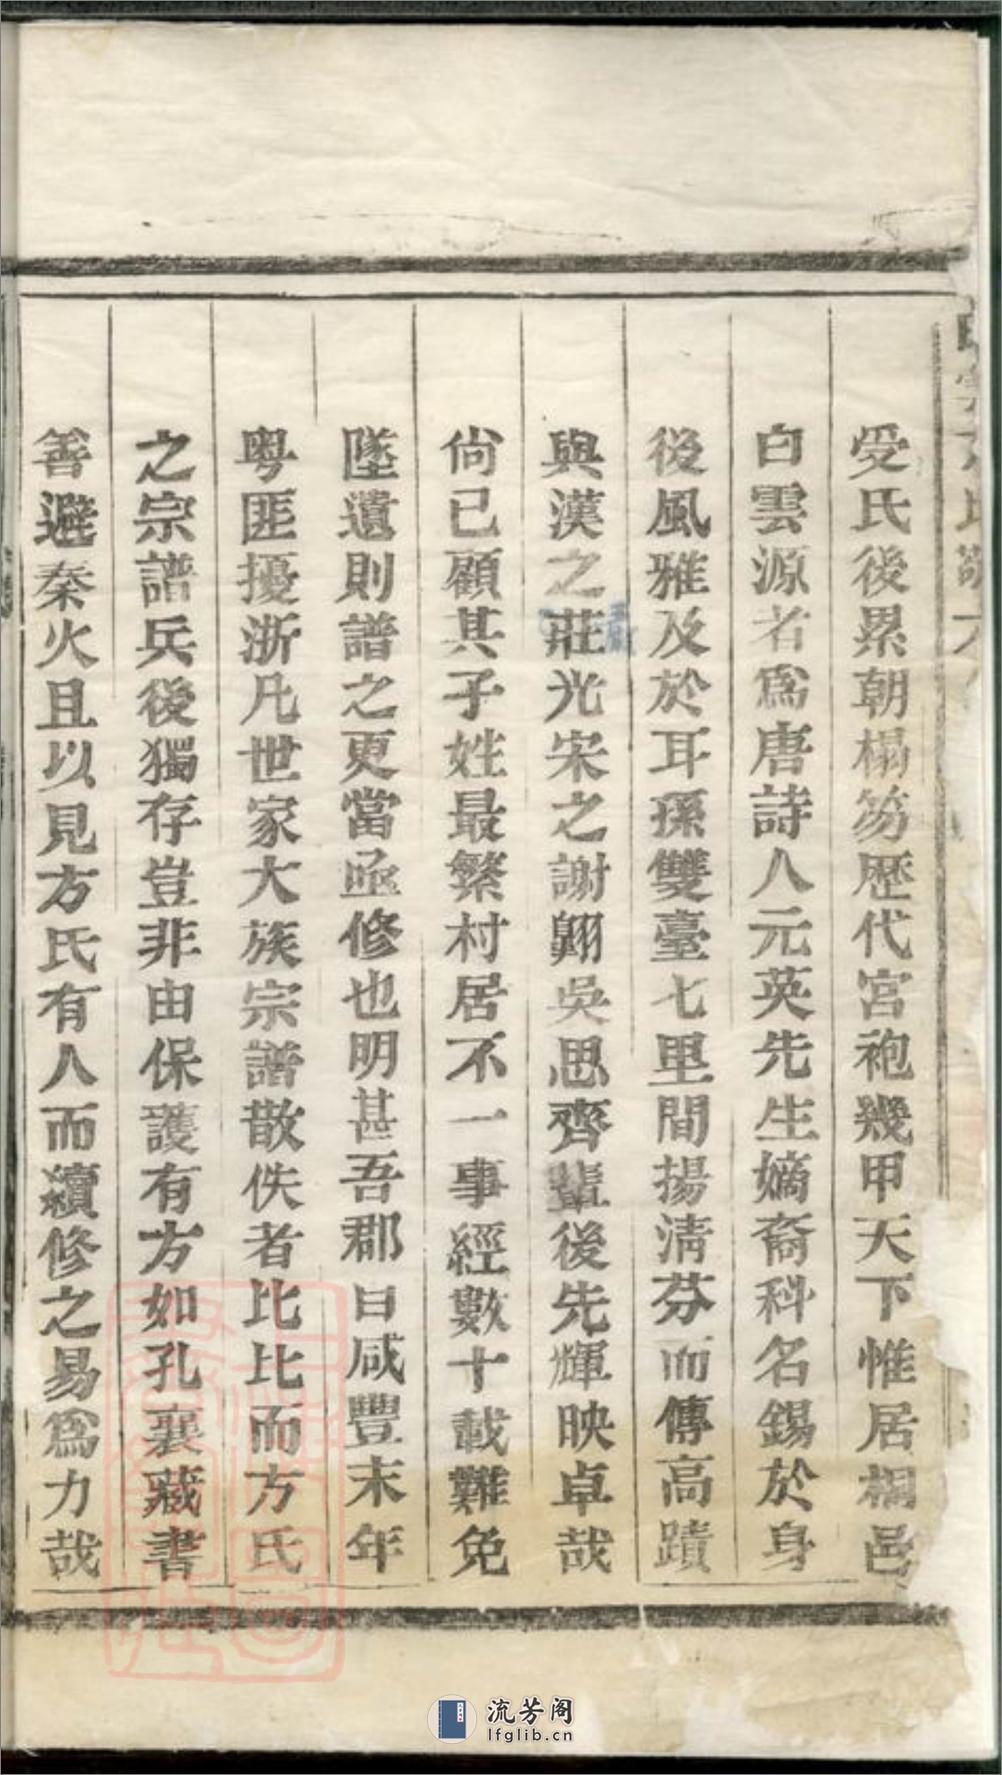 受氏後累朝榻笏歷代宮袍幾甲天下惟居桐邑
白雲源者爲唐詩人元英先生嫡裔科名錫於身
後風雅及於耳孫雙臺七里間揚淸芬而傳高蹟
與漢之莊光宋之謝翺吳思齊輩後先輝映卓哉
尙已顧其子姓最繁村居不一事經數十載難免
墜遺則譜之更當亟修也明甚吾郡曰咸豐末年
粵匪擾浙凡世家大族宗譜散佚者比比而方氏
之宗譜兵後獨存豈非由保護有方如孔襄藏書
善避秦火且以見方氏有人而續修之易爲力哉
流芳阁
lfglib.cn